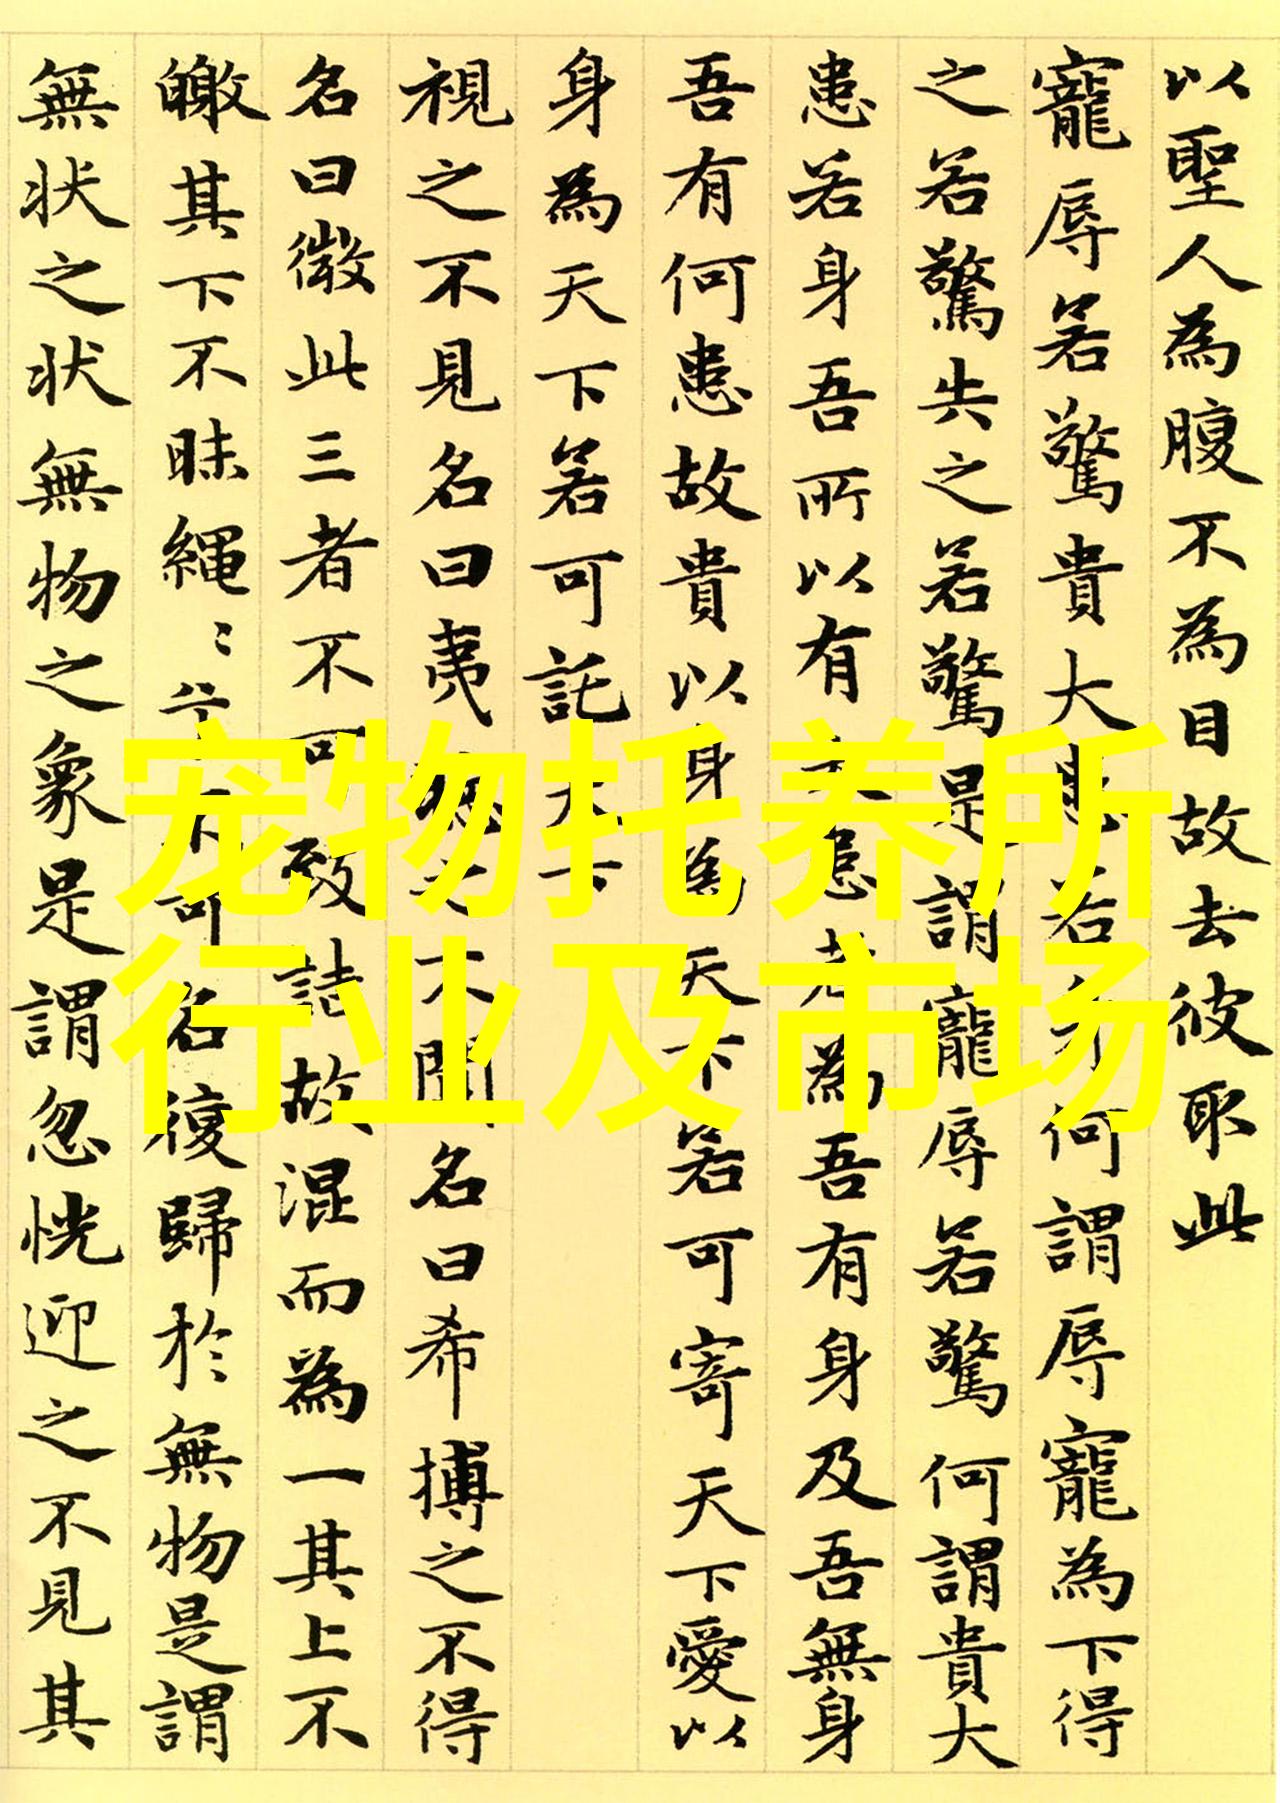 以聖人為腹不為目故去彼取此
寵辱若驚貴大患若身何謂辱寵為下得
之若驚失之若驚是謂寵辱若驚何謂貴大
患若身吾所以有大患者為吾有身及吾無身
吾有何患故貴以身為天下若可寄天下愛以
身為天下若可託天下
視之不見名曰夷聽之不聞名曰希搏之不得
名曰微此三者不可致詰故混而為一其上不
皦其下不昧繩〻兮不可名復歸於無物是謂
無状之状無物之象是謂忽恍迎之不見其
宠物托养所
行业及市场